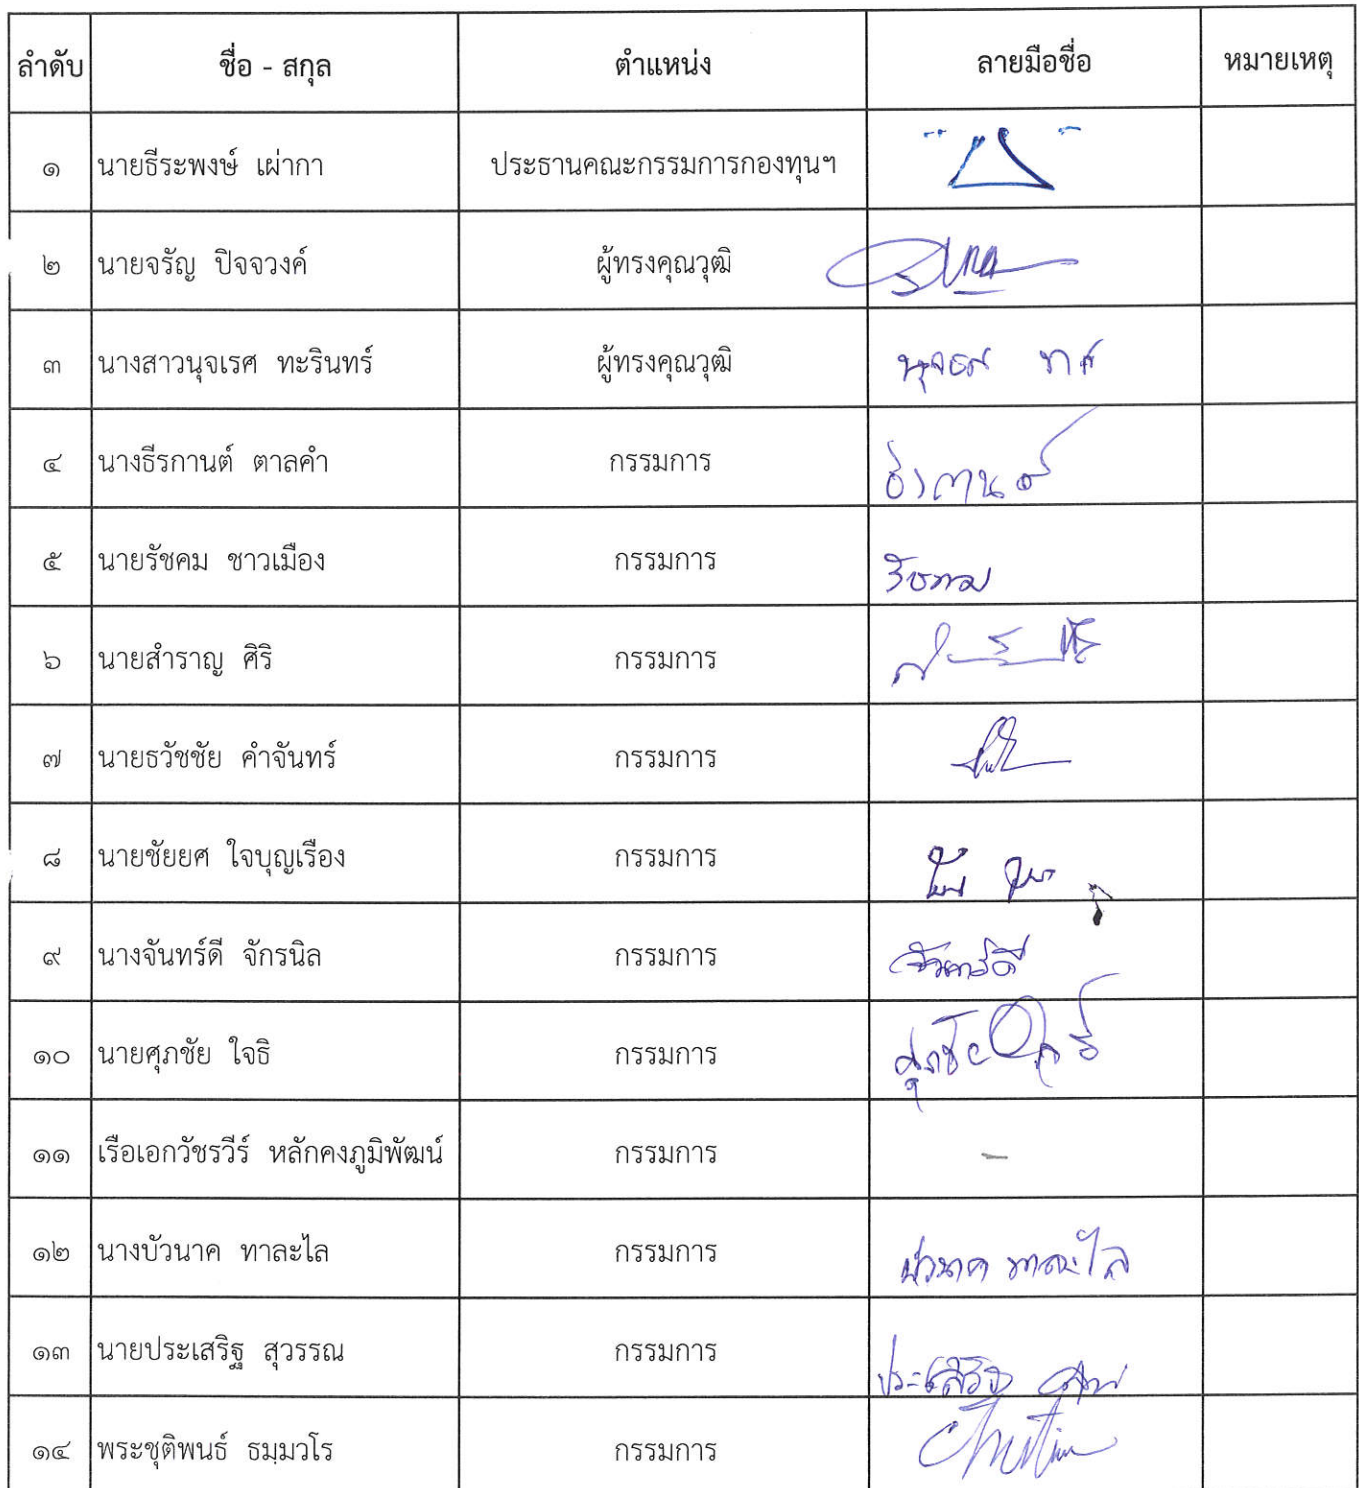 ลำดับ ชื่อ - สกุล ตำแหน่ง ลายมือชื่อ หมายเหตุ
๑ นายธีระพงษ์ เผ่ากา ประธานคณะกรรมการกองทุนฯ
๒ นายจรัญ ปิจจวงค์ ผู้ทรงคุณวุฒิ
๓ นางสาวนุจเรศ ทะรินทร์ ผู้ทรงคุณวุฒิ
๔ นางธีรกานต์ ตาลคำ กรรมการ ธีรกานต์
๕ นายรัชคม ชาวเมือง กรรมการ รัชคม
๖ นายสำราญ ศิริ กรรมการ
๗ นายธวัชชัย คำจันทร์ กรรมการ
๘ นายชัยยศ ใจบุญเรือง กรรมการ
๙ นางจันทร์ดี จักรนิล กรรมการ จันทร์ดี
๑๐ นายศุภชัย ใจธิ กรรมการ ศุภชัย ใจธิ
๑๑ เรือเอกวัชรวีร์ หลักคงภูมิพัฒน์ กรรมการ -
๑๒ นางบัวนาค ทาละไล กรรมการ บัวนาค ทาละไล
๑๓ นายประเสริฐ สุวรรณ กรรมการ ประเสริฐ
๑๔ พระชุติพนธ์ ธมฺมวโร กรรมการ